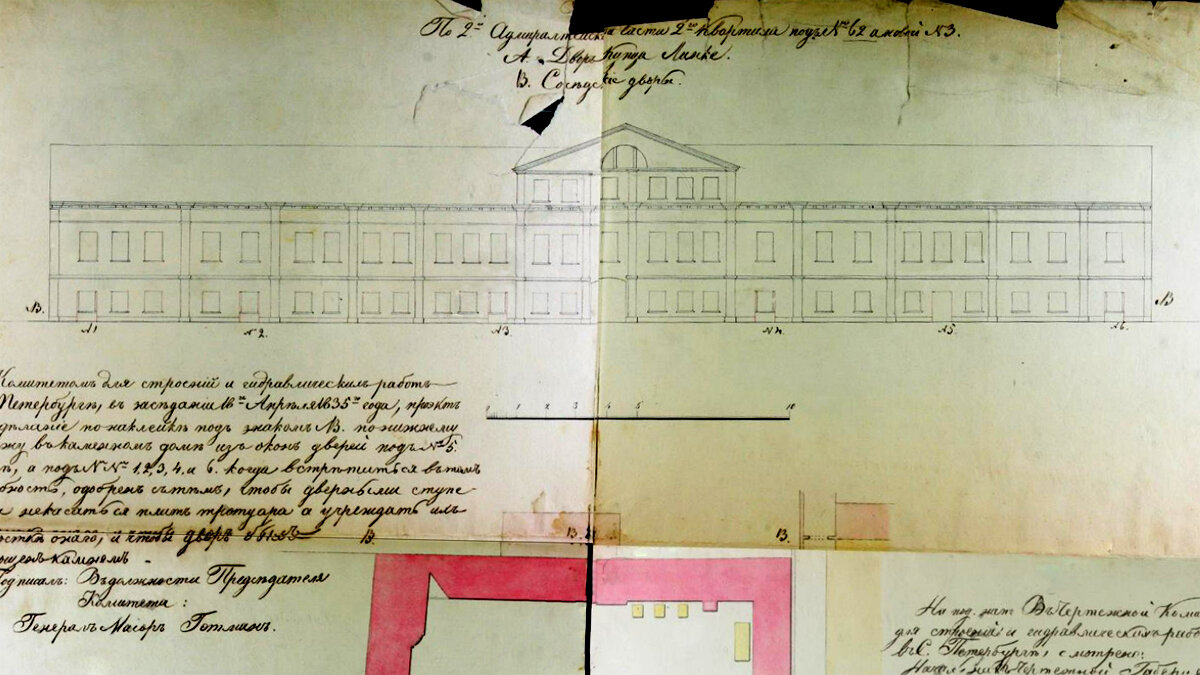 По 2й Адмиралтейской части 2го квартала подъ №62 а новой №3.
А. Дворъ Купца Линке.
В. Соседские дворы.
В.
В
№1
№2.
№3
№4.
№5.
№6.
Комитетомъ для строений и гидравлическихъ работъ
Петербурге, въ заседании 16го Апреля 1835го года, проэктъ
по наклейке подъ знакомъ В. по нижнему
жу въ каменномъ доме изъ оконъ дверей подъ №5.
а подъ №№ 1, 2, 3, 4, и 6. когда встретиться въ томъ
бность, одобренъ съ темъ, чтобы дверными ступе
не касаться плитъ тротуара а учреждать ихъ
онаго, и чтобы дворъ
камнемъ.
Подписалъ: Въ должности Председателя
Комитета:
Генералъ Маиоръ Готманъ.
1 2 3 4 5 10
В.
В.
В.
На под. нап. Въ Чертежной Коми
для строений и гидравлическихъ рабо
въ С. Петербурге, смотрено:
Чертежной